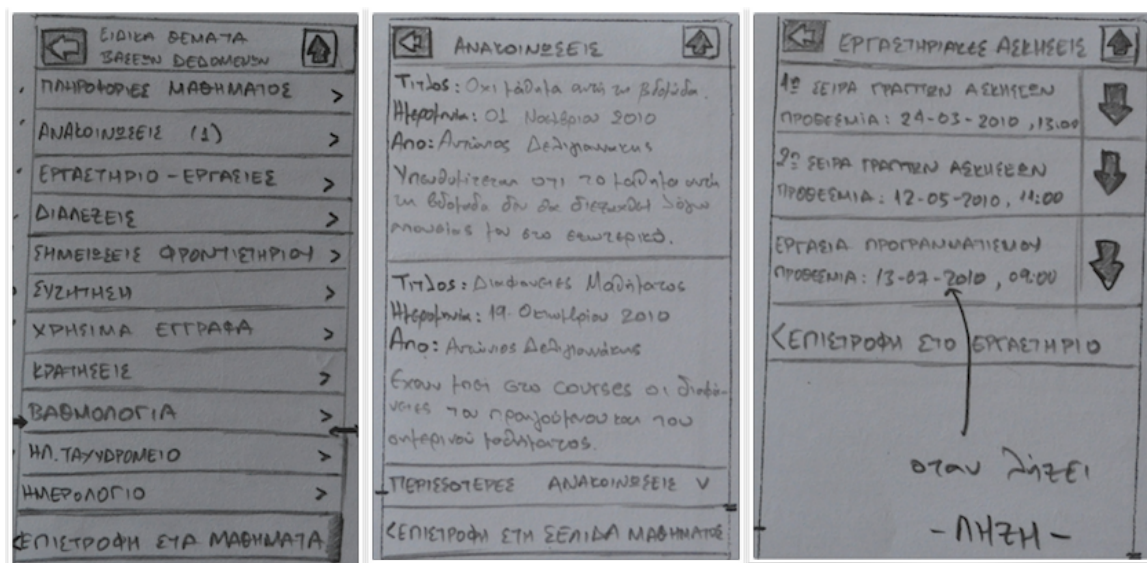 ΕΙΔΙΚΑ ΘΕΜΑΤΑ
ΒΑΣΕΩΝ ΔΕΔΟΜΕΝΩΝ
ΠΛΗΡΟΦΟΡΙΕΣ ΜΑΘΗΜΑΤΟΣ >
ΑΝΑΚΟΙΝΩΣΕΙΣ (1) >
ΕΡΓΑΣΤΗΡΙΟ - ΕΡΓΑΣΙΕΣ >
ΔΙΑΛΕΞΕΙΣ >
ΣΗΜΕΙΩΣΕΙΣ ΦΡΟΝΤΙΣΤΗΡΙΟΥ >
ΣΥΖΗΤΗΣΗ >
ΧΡΗΣΙΜΑ ΕΓΓΡΑΦΑ >
ΚΡΑΤΗΣΕΙΣ >
ΒΑΘΜΟΛΟΓΙΑ >
ΗΛ. ΤΑΧΥΔΡΟΜΕΙΟ >
ΗΜΕΡΟΛΟΓΙΟ >
<ΕΠΙΣΤΡΟΦΗ ΣΤΑ ΜΑΘΗΜΑΤΑ
ΑΝΑΚΟΙΝΩΣΕΙΣ
Τιτλος: Οχι μάθημα αυτή τη βδομάδα.
Ημερομηνία: 01 Νοεμβρίου 2010
Απο: Αντώνιος Δεληγιαννάκης
Υπενθυμίζεται οτι το μάθημα αυτή
τη βδομάδα δεν θα διεξαχθεί λόγω
απουσίας μου στο εξωτερικό.
Τιτλος: Διαφάνειες Μαθήματος
Ημερομηνία: 19 Οκτωβρίου 2010
Απο: Αντώνιος Δεληγιαννάκης
Εχουν μπεί στο courses οι διαφά-
νειες του προηγούμενου και του
σημερινού μαθήματος.
ΠΕΡΙΣΣΟΤΕΡΕΣ ΑΝΑΚΟΙΝΩΣΕΙΣ V
<ΕΠΙΣΤΡΟΦΗ ΣΤΗ ΣΕΛΙΔΑ ΜΑΘΗΜΑΤΟΣ
ΕΡΓΑΣΤΗΡΙΑΚΕΣ ΑΣΚΗΣΕΙΣ
1η ΣΕΙΡΑ ΓΡΑΠΤΩΝ ΑΣΚΗΣΕΩΝ
ΠΡΟΘΕΣΜΙΑ: 24-03-2010, 13:00
2η ΣΕΙΡΑ ΓΡΑΠΤΩΝ ΑΣΚΗΣΕΩΝ
ΠΡΟΘΕΣΜΙΑ: 12-05-2010, 11:00
ΕΡΓΑΣΙΑ ΠΡΟΓΡΑΜΜΑΤΙΣΜΟΥ
ΠΡΟΘΕΣΜΙΑ: 13-07-2010, 09:00
<ΕΠΙΣΤΡΟΦΗ ΣΤΟ ΕΡΓΑΣΤΗΡΙΟ
οταν λήξει
- ΛΗΞΗ -